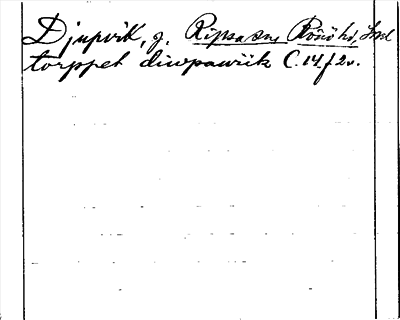 Djupvik, g. Ripsa sn, Rönö hd, Sml
torppet diwpawiik C. 14 f. 2v.